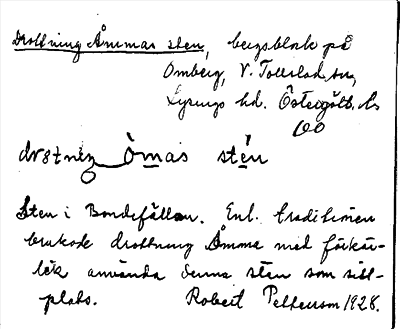 Drottning Åmmas sten, bergsblock på
Omberg, V. Tollstad sn,
Lysings hd. Östergötl. ls
100
drɛtniŋ òmas stén
Sten i Bondefällan. Enl. traditionen
brukade drottning Åmma med förkär-
lek använda denna sten som sitt-
plats. Robert Pettersson 1928.